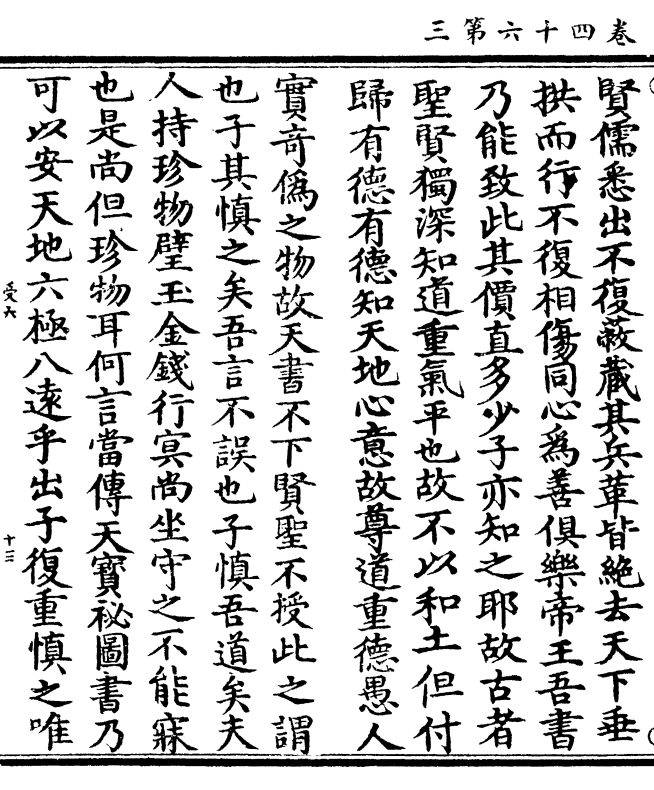 卷四十六第三
賢儒悉出不復蔽藏其兵革皆絕去天下垂
拱而行不復相傷同心為善俱樂帝王吾書
乃能致此其價直多少子亦知之耶故古者
聖賢獨深知道重氣平也故不以和土但付
歸有德有德知天地心意故尊道重德愚人
實奇偽之物故天書不下賢聖不授此之謂
也子其慎之矣吾言不誤也子慎吾道矣夫
人持珍物璧玉金錢行冥尚坐守之不能寐
也是尚但珍物耳何言當傳天寶祕圖書乃
可以安天地六極八遠乎出子復重慎之唯
受六
十三